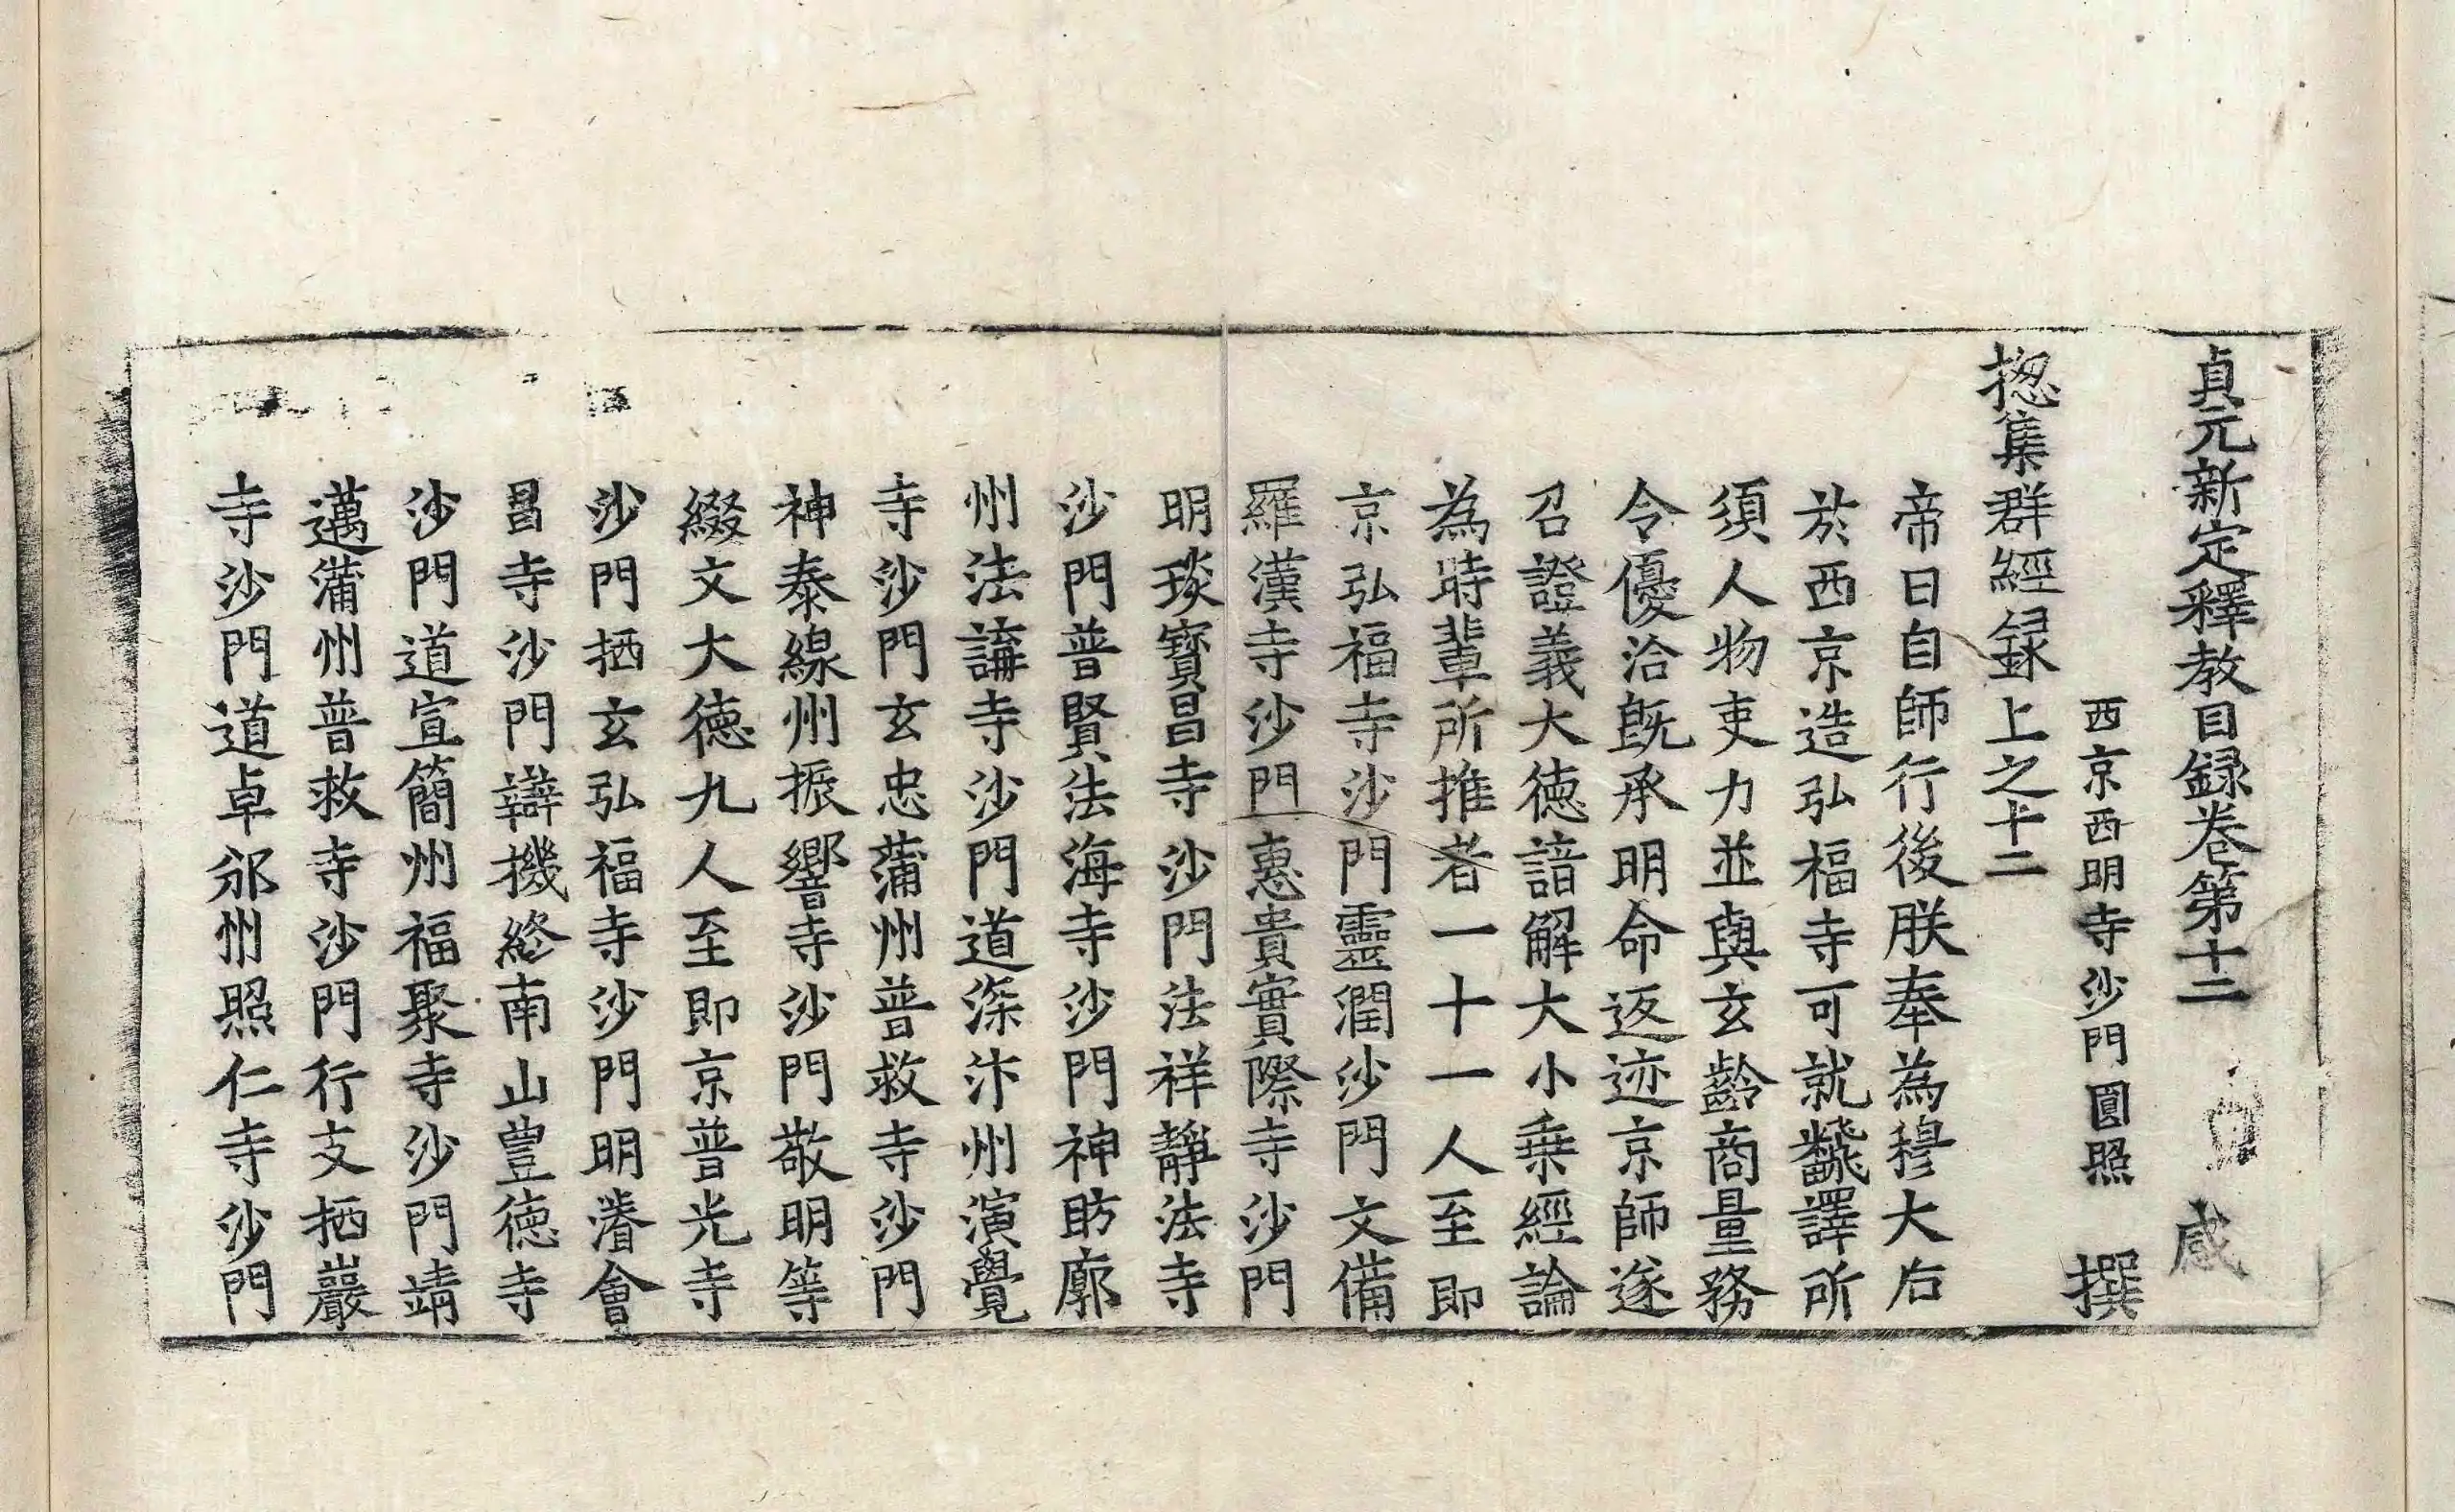 貞元新定釋教目録卷第十二 咸
西京西明寺沙門圓照 撰
揔集群經録上之十二
帝曰自師行後朕奉為穆大后
於西京造弘福寺可就飜譯所
須人物吏力並與玄齡商量務
令優洽旣承明命返迹京師遂
召證義大德諳解大小乗經論
為時輩所推者一十一人至即
京弘福寺沙門靈潤沙門文備
羅漢寺沙門惠貴實際寺沙門
明琰寶昌寺沙門法祥靜法寺
沙門普賢法海寺沙門神昉廓
州法講寺沙門道深汴州演覺
寺沙門玄忠蒲州普救寺沙門
神泰綿州振響寺沙門敬明等
綴文大德九人至即京普光寺
沙門栖玄弘福寺沙門明濬會
昌寺沙門辯機終南山豊德寺
沙門道宣簡州福聚寺沙門靖
邁蒲州普救寺沙門行友栖巖
寺沙門道卓邠州照仁寺沙門